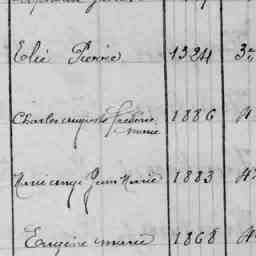 Elié Pierre 1324 3
Charles auguste frédéric 1886
marie
Marie ange Jean Marie 1883
Eugène marie 1868